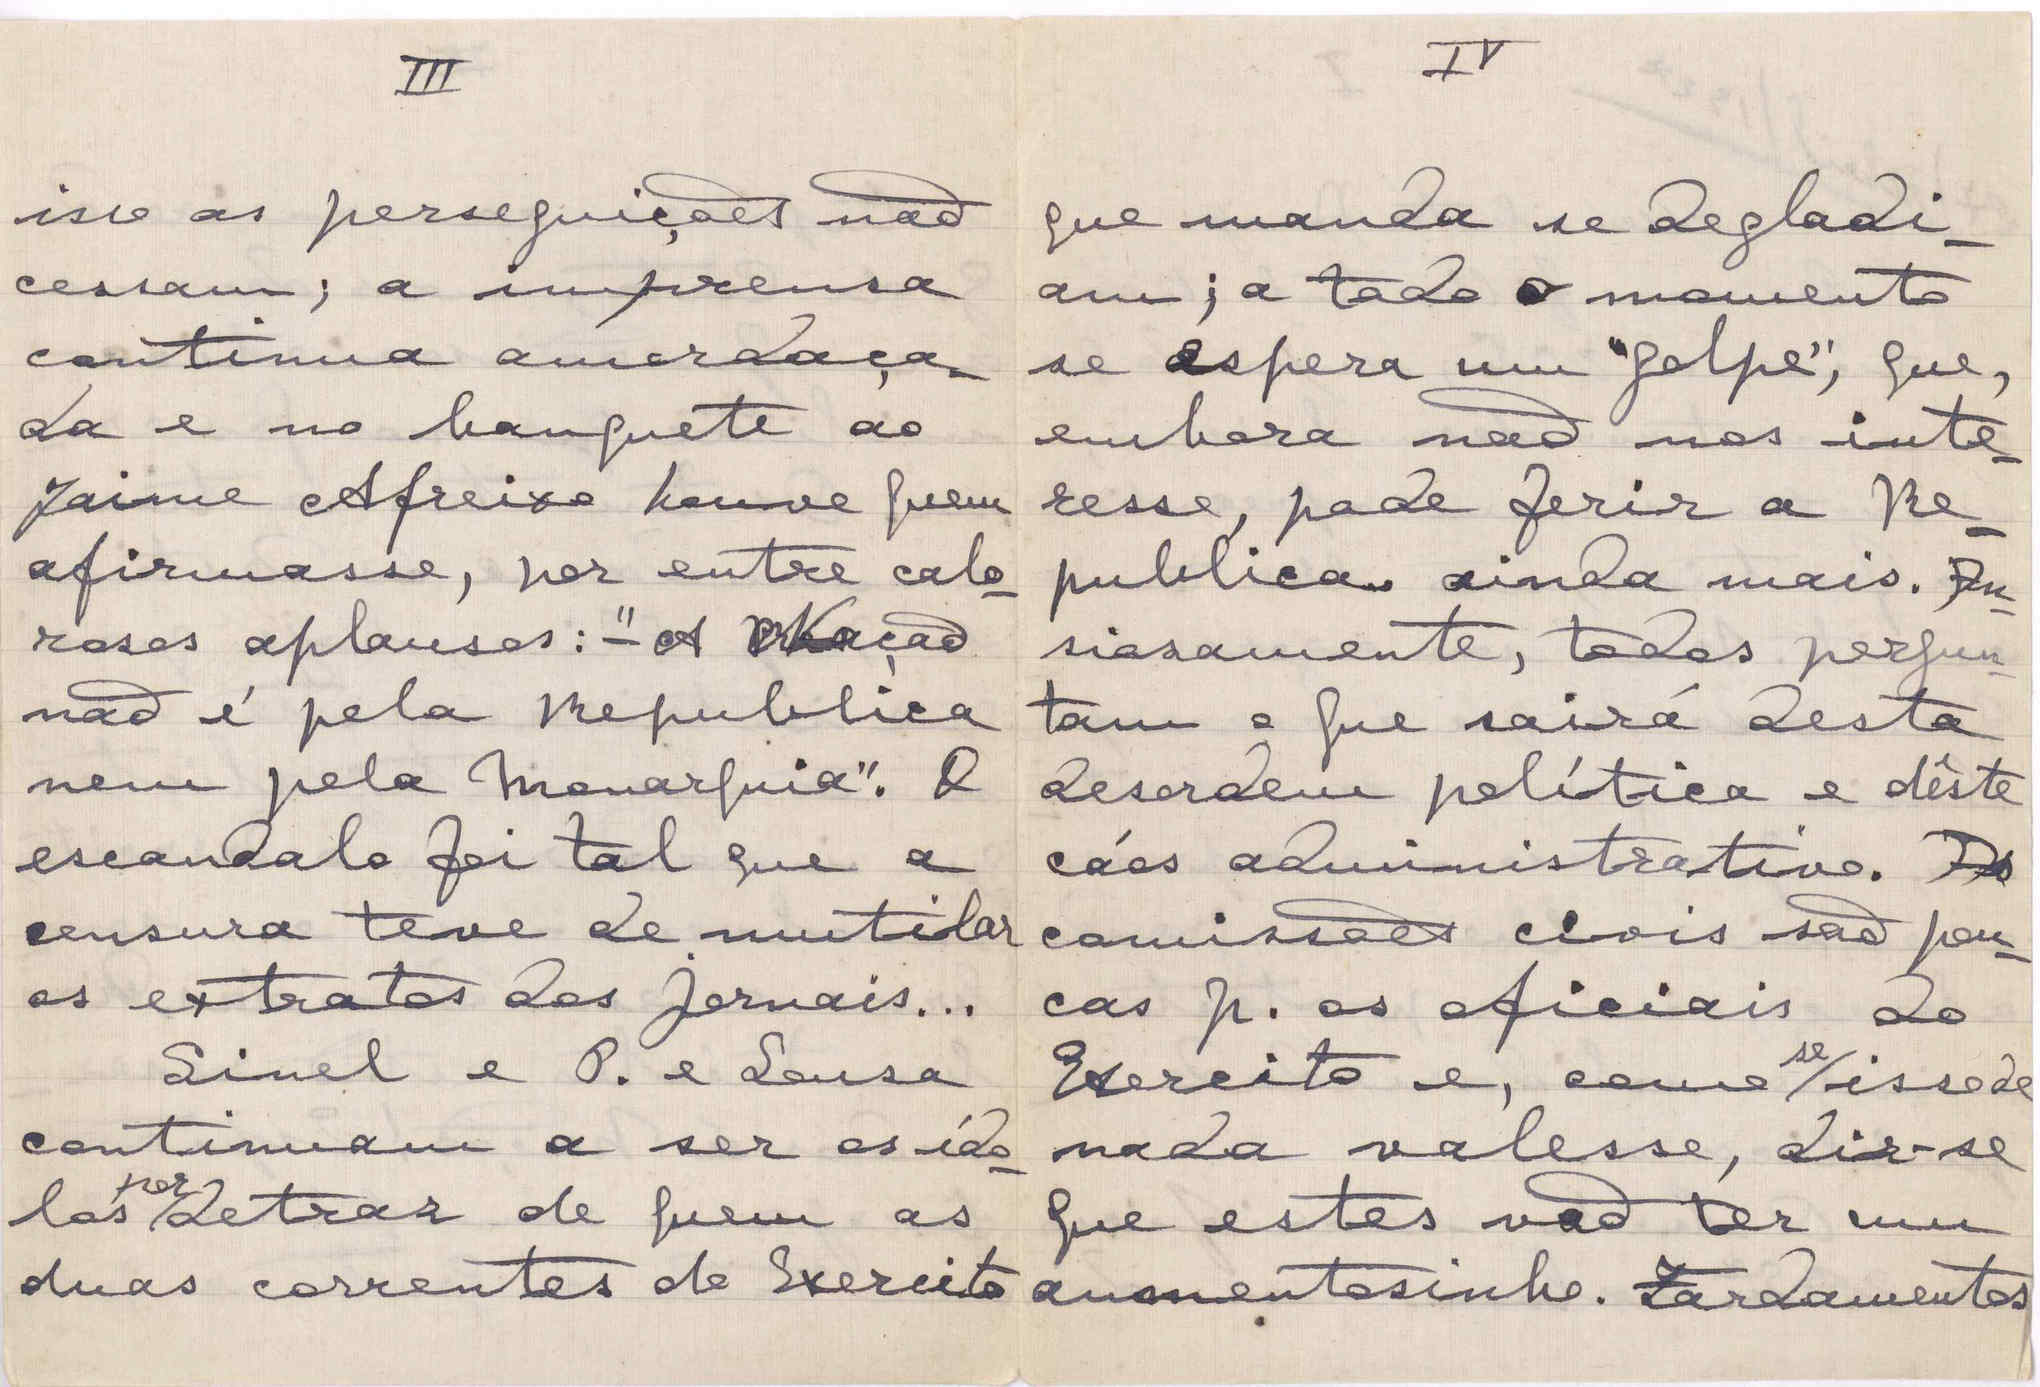 III
isso as perseguições não
cessam; a imprensa
continua amordaça-
da e no banquete ao
Jaime Afreixo houve quem
afirmasse, por entre calo-
rosos aplausos: "- A Nação
não é pela Republica
nem pela Monarquia". O
escandalo foi tal que a
censura teve de mutilar
os extratos dos jornais...
Sinel e P. e Sousa
continuam a ser os ído-
los por detraz de quem as
duas correntes do Exercito
IV
que manda se degladi-
am; a todo o momento
se espera um "golpe", que,
embora não nos inte-
resse, pode ferir a Re-
publica ainda mais. An-
siosamente, todos pergun-
tam o que sairá desta
desordem política e dêste
cáos administrativo. As
comissões civis são pou-
cas p. os oficiais do
Exercito e, como se isso de
nada valesse, dir-se
que estes vão ter um
aumentosinho. Fardamentos